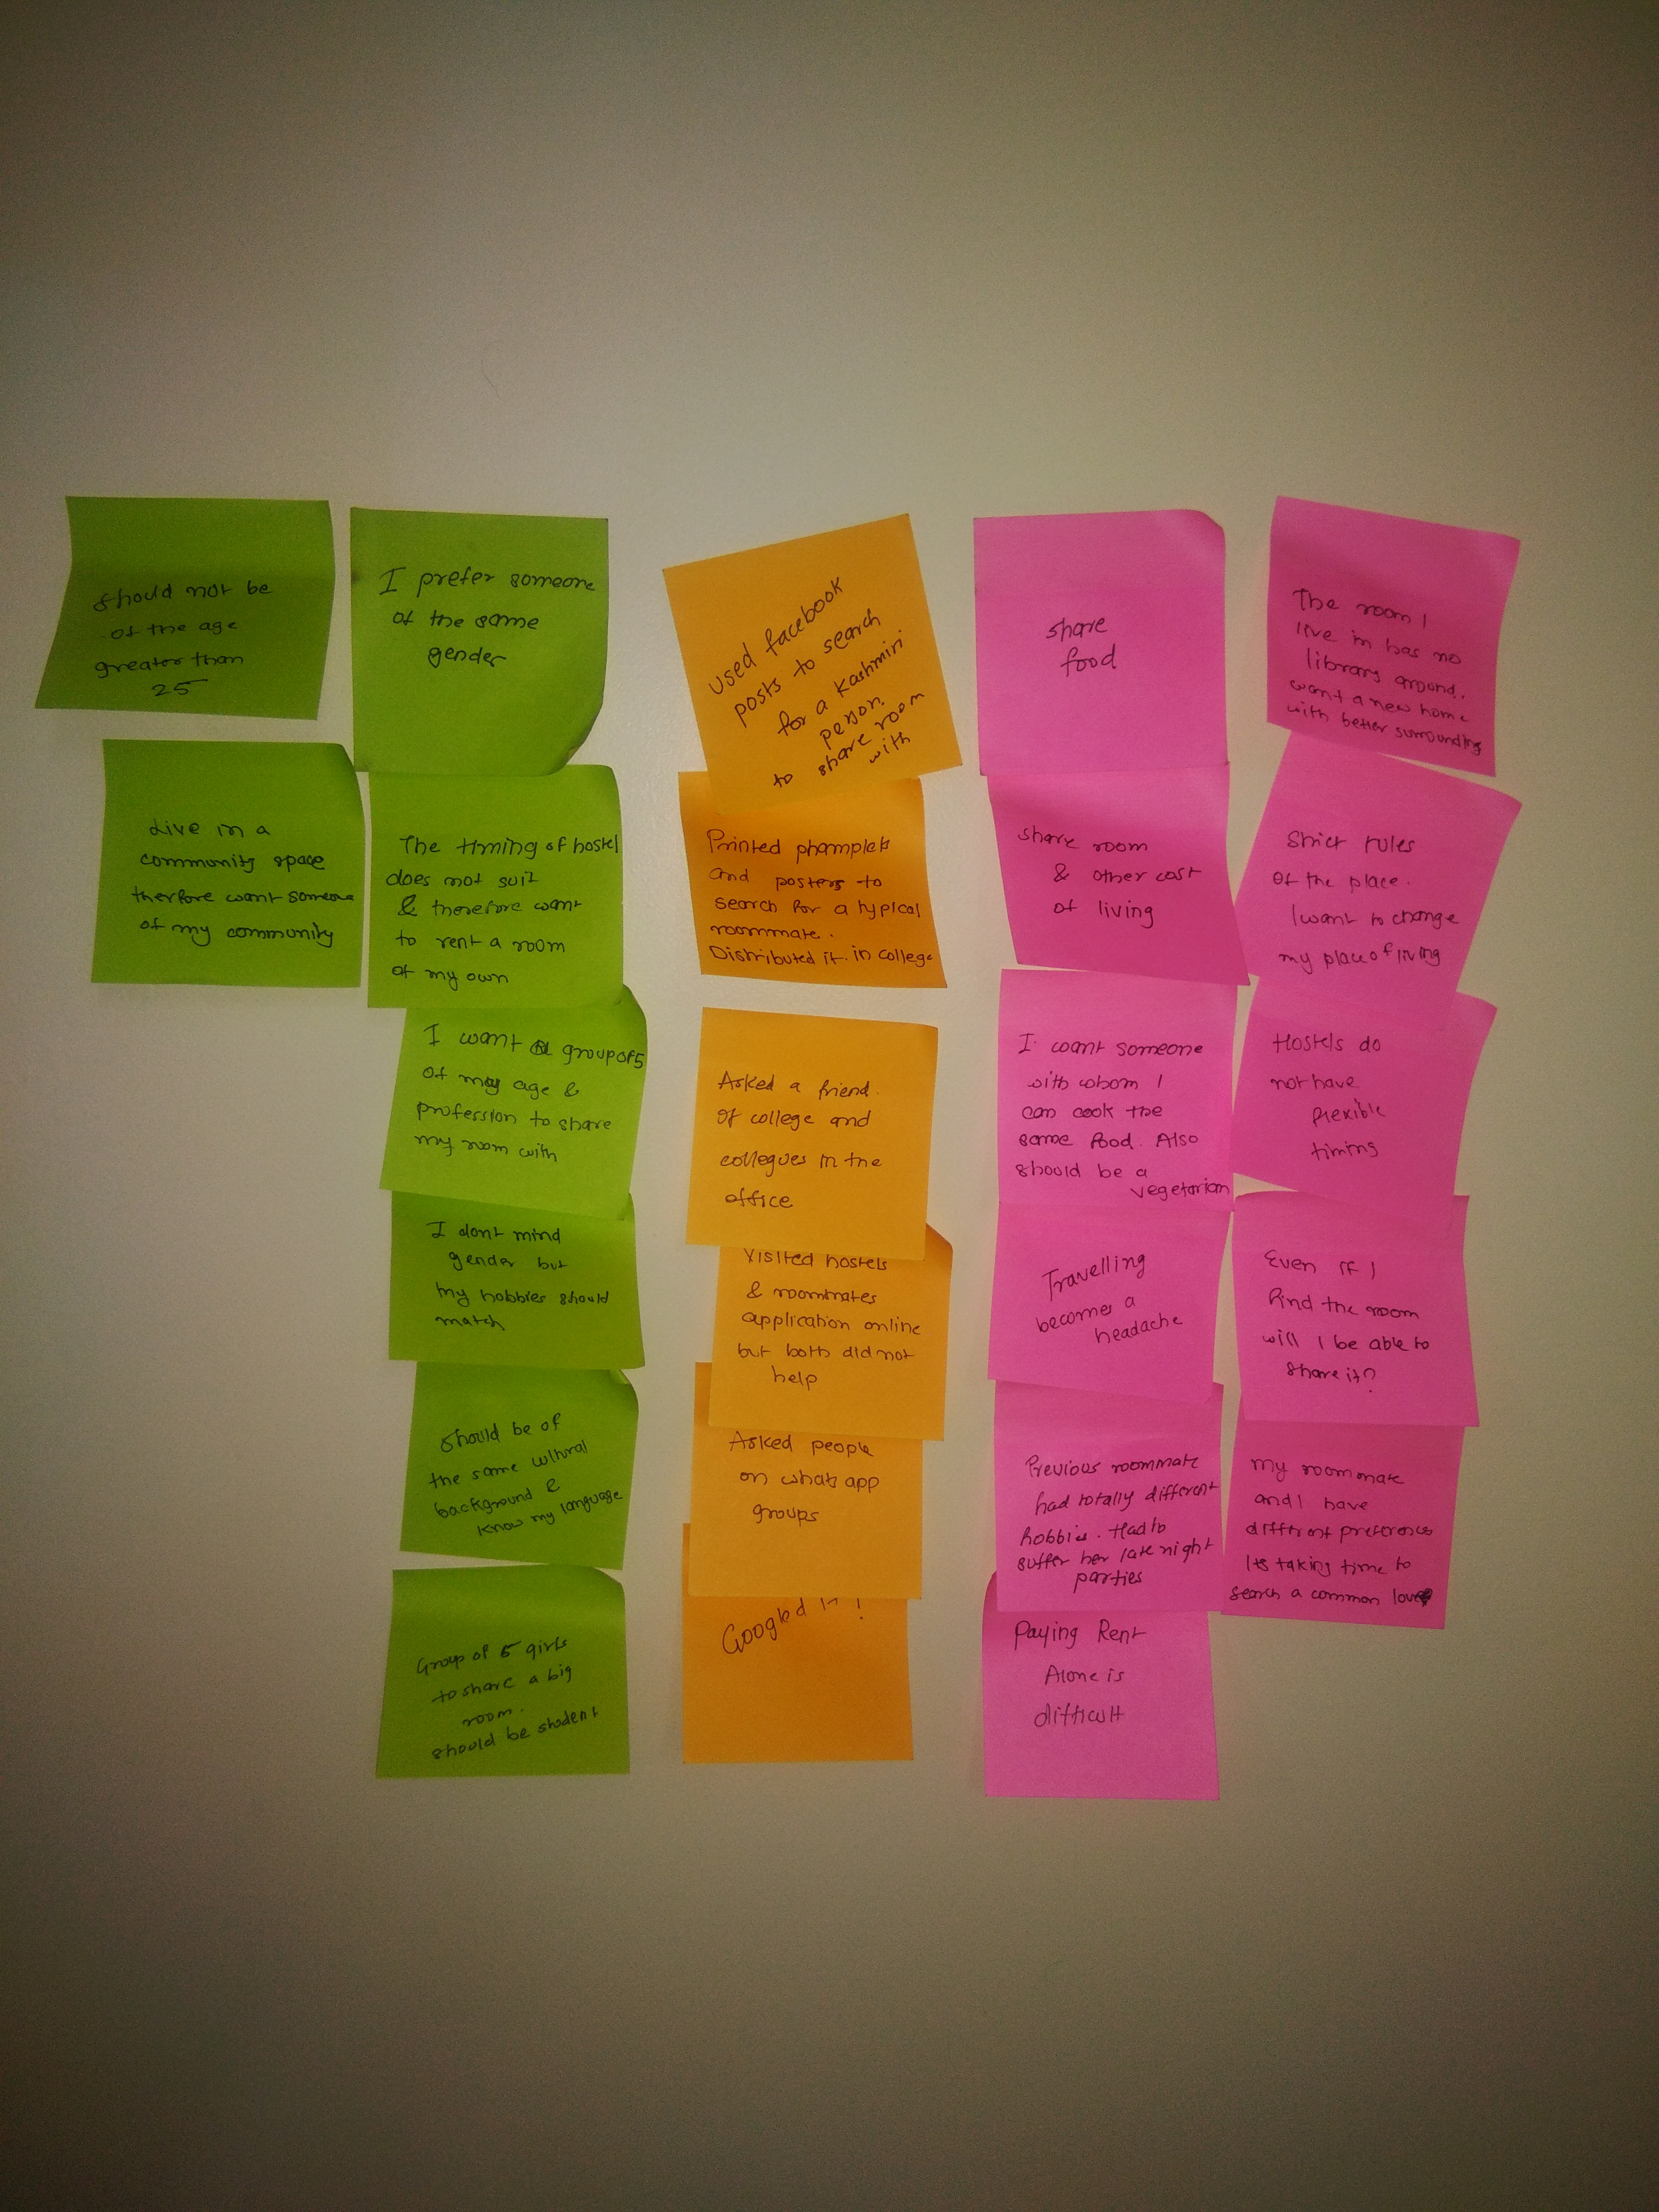 should not be
of the age
greater than
25
Live in a
community space
therfore want someone
of my community
I prefer someone
of the same
gender
The timing of hostel
does not suit
& therefore want
to rent a room
of my own
I want a group of 5
of my age &
profession to share
my room with
I dont mind
gender but
my hobbies should
match
Should be of
the same cultural
background &
know my language
Group of 5 girls
to share a big
room.
should be student
used facebook
posts to search
for a Kashmiri
person.
to share room
with
Printed phamplets
and posters to
search for a typical
roommate.
Distributed it in college
Asked a friend
of college and
collegues in the
office
Visited hostels
& roommates
application online
but both did not
help
Asked people
on whats app
groups
Googled it!
share
food
share room
& other cost
of living
I want someone
with whom I
can cook the
same food. Also
should be a
vegetarian
Travelling
becomes a
headache
Previous roommate
had totally different
hobbies. Had to
suffer her late night
parties
Paying Rent
Alone is
difficult
The room I
live in has no
library around.
want a new home
with better surrounding
Strict rules
of the place.
I want to change
my place of living
Hostels do
not have
flexible
timing
Even if I
find the room
will I be able to
share it?
my roommate
and I have
different preferences
Its taking time to
search a common